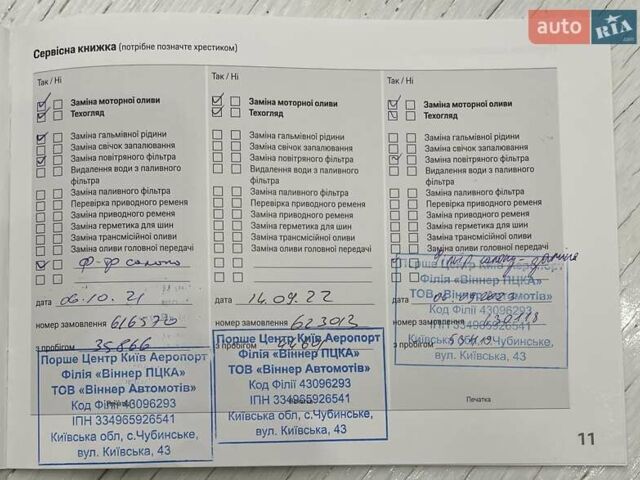 auto RIA
.com
Сервісна книжка (потрібне позначте хрестиком)
Так / Ні
Заміна моторної оливи
Техогляд
Заміна гальмівної рідини
Заміна свічок запалювання
Заміна повітряного фільтра
Видалення води з паливного
фільтра
Заміна паливного фільтра
Перевірка приводного ременя
Заміна приводного ременя
Заміна герметика для шин
Заміна трансмісійної оливи
Заміна оливи головної передачі
Ф-р салону
дата 06.10.21
номер замовлення 616570
з пробігом 35866
Порше Центр Київ Аеропорт
Філія «Віннер ПЦКА»
ТОВ «Віннер Автомотів»
Код Філії 43096293
ІПН 334965926541
Київська обл, с.Чубинське,
вул. Київська, 43
Так / Ні
Заміна моторної оливи
Техогляд
Заміна гальмівної рідини
Заміна свічок запалювання
Заміна повітряного фільтра
Видалення води з паливного
фільтра
Заміна паливного фільтра
Перевірка приводного ременя
Заміна приводного ременя
Заміна герметика для шин
Заміна трансмісійної оливи
Заміна оливи головної передачі
дата 14.09.22
номер замовлення 623013
Порше Центр Київ Аеропорт
Філія «Віннер ПЦКА»
ТОВ «Віннер Автомотів»
Код Філії 43096293
ІПН 334965926541
Київська обл, с.Чубинське,
вул. Київська, 43
Так / Ні
Заміна моторної оливи
Техогляд
Заміна гальмівної рідини
Заміна свічок запалювання
Заміна повітряного фільтра
Видалення води з паливного
фільтра
Заміна паливного фільтра
Перевірка приводного ременя
Заміна приводного ременя
Заміна герметика для шин
Заміна трансмісійної оливи
Заміна оливи головної передачі
Порше Центр Київ Аеропорт
Філія «Віннер ПЦКА»
ТОВ «Віннер Автомотів»
дата
Код Філії 43096293
номер замовлення
ІПН 334965926541
з пробігом
Київська обл, с.Чубинське,
вул. Київська, 43
Печатка
11